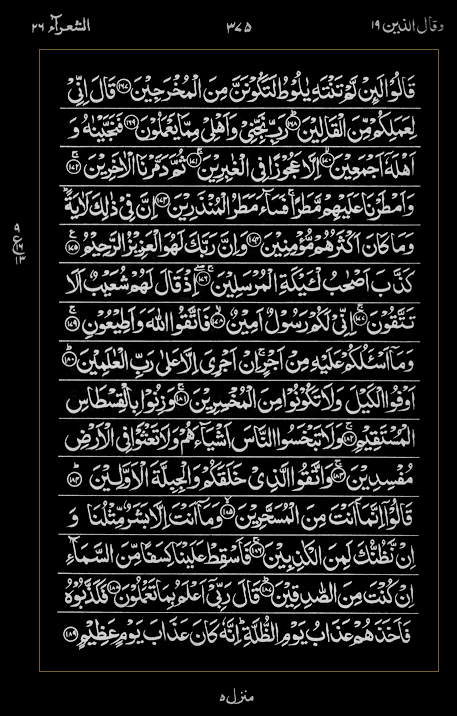 وقال الذین ١٩ ٣٧٥ الشعرآء ٢٦
قَالُوۡا لَئِنۡ لَّمۡ تَنۡتَهِ يٰلُوۡطُ لَتَكُوۡنَنَّ مِنَ الۡمُخۡرَجِيۡنَ ﴿۱۶۷﴾ قَالَ اِنِّىۡ
لِعَمَلِكُمۡ مِّنَ الۡقَالِيۡنَ ﴿۱۶۸﴾ رَبِّ نَجِّنِىۡ وَاَهۡلِىۡ مِمَّا يَعۡمَلُوۡنَ ﴿۱۶۹﴾ فَنَجَّيۡنٰهُ وَ
اَهۡلَهٗۤ اَجۡمَعِيۡنَ ﴿۱۷۰﴾ اِلَّا عَجُوۡزًا فِى الۡغٰبِرِيۡنَ ﴿۱۷۱﴾ ثُمَّ دَمَّرۡنَا الۡاٰخَرِيۡنَ ﴿۱۷۲﴾
وَاَمۡطَرۡنَا عَلَيۡهِمۡ مَّطَرًا ۚ فَسَآءَ مَطَرُ الۡمُنۡذَرِيۡنَ ﴿۱۷۳﴾ اِنَّ فِىۡ ذٰلِكَ لَاٰيَةً ؕ
وَمَا كَانَ اَكۡثَرُهُمۡ مُّؤۡمِنِيۡنَ ﴿۱۷۴﴾ وَاِنَّ رَبَّكَ لَهُوَ الۡعَزِيۡزُ الرَّحِيۡمُ ﴿۱۷۵﴾
٩
ع
١٣
كَذَّبَ اَصۡحٰبُ لْئَيۡكَةِ الۡمُرۡسَلِيۡنَ ﴿۱۷۶﴾ اِذۡ قَالَ لَهُمۡ شُعَيۡبٌ اَلَا
تَتَّقُوۡنَ ﴿۱۷۷﴾ اِنِّىۡ لَـكُمۡ رَسُوۡلٌ اَمِيۡنٌ ﴿۱۷۸﴾ فَاتَّقُوا اللّٰهَ وَ اَطِيۡعُوۡنِ ﴿۱۷۹﴾
وَمَاۤ اَسۡـَٔـلُكُمۡ عَلَيۡهِ مِنۡ اَجۡرٍ ۚ اِنۡ اَجۡرِىَ اِلَّا عَلٰى رَبِّ الۡعٰلَمِيۡنَ ﴿۱۸۰﴾
اَوۡفُوا الۡـكَيۡلَ وَلَا تَكُوۡنُوۡا مِنَ الۡمُخۡسِرِيۡنَ ﴿۱۸۱﴾ وَزِنُوۡا بِالۡقِسۡطَاسِ
الۡمُسۡتَقِيۡمِ ﴿۱۸۲﴾ وَلَا تَبۡخَسُوا النَّاسَ اَشۡيَآءَهُمۡ وَلَا تَعۡثَوۡا فِى الۡاَرۡضِ
مُفۡسِدِيۡنَ ﴿۱۸۳﴾ وَاتَّقُوا الَّذِىۡ خَلَقَكُمۡ وَالۡجِـبِلَّةَ الۡاَوَّلِيۡنَ ﴿۱۸۴﴾
قَالُوۡۤا اِنَّمَاۤ اَنۡتَ مِنَ الۡمُسَحَّرِيۡنَ ﴿۱۸۵﴾ وَمَاۤ اَنۡتَ اِلَّا بَشَرٌ مِّثۡلُـنَا وَ
اِنۡ نَّظُنُّكَ لَمِنَ الۡكٰذِبِيۡنَ ﴿۱۸۶﴾ فَاَسۡقِطۡ عَلَيۡنَا كِسَفًا مِّنَ السَّمَآءِ
اِنۡ كُنۡتَ مِنَ الصّٰدِقِيۡنَ ﴿۱۸۷﴾ قَالَ رَبِّىۡۤ اَعۡلَمُ بِمَا تَعۡمَلُوۡنَ ﴿۱۸۸﴾ فَكَذَّبُوۡهُ
فَاَخَذَهُمۡ عَذَابُ يَوۡمِ الظُّلَّةِ ؕ اِنَّهٗ كَانَ عَذَابَ يَوۡمٍ عَظِيۡمٍ ﴿۱۸۹﴾
منزل ٥